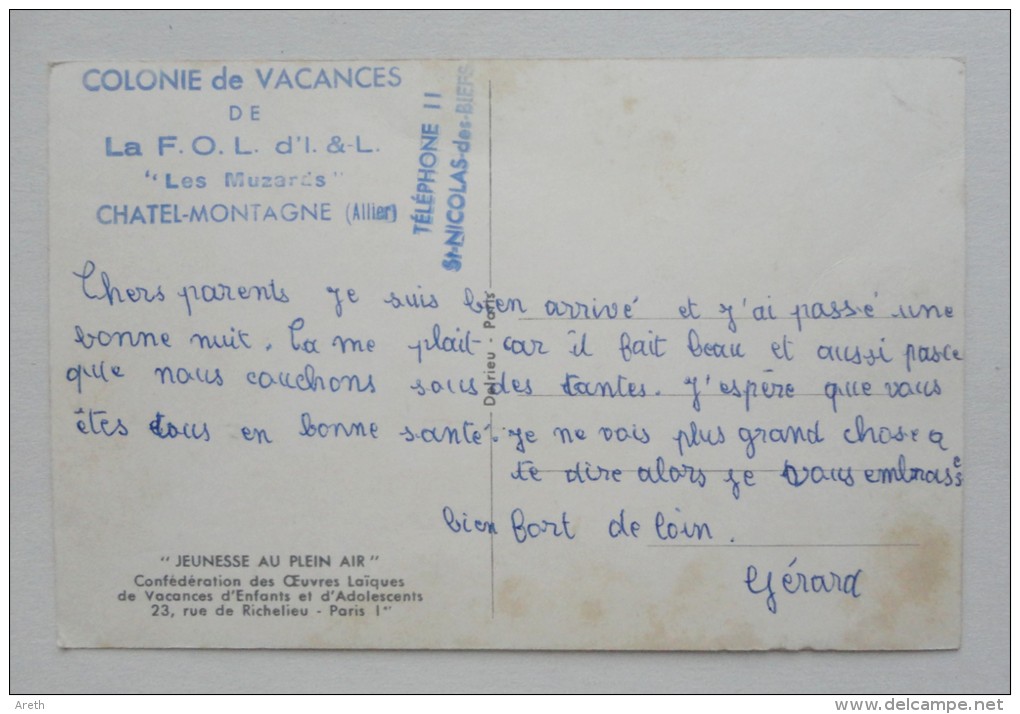 COLONIE de VACANCES
DE
La F. O. L. d'I. & L.
"Les Muzards"
CHATEL-MONTAGNE (Allier)
TÉLÉPHONE 11
St-NICOLAS-des-BIEFS
Chers parents je suis bien arrivé et j'ai passé une
bonne nuit. Ca me plait car il fait beau et aussi parce
que nous couchons sous des tantes. J'espère que vous
êtes tous en bonne santé. je ne vois plus grand chose a
te dire alors je vous embrasse
bien fort de loin.
Gérard
Delrieu - Paris
"JEUNESSE AU PLEIN AIR"
Confédération des Œuvres Laïques
de Vacances d'Enfants et d'Adolescents
23, rue de Richelieu - Paris 1er
Areth
delcampe.net